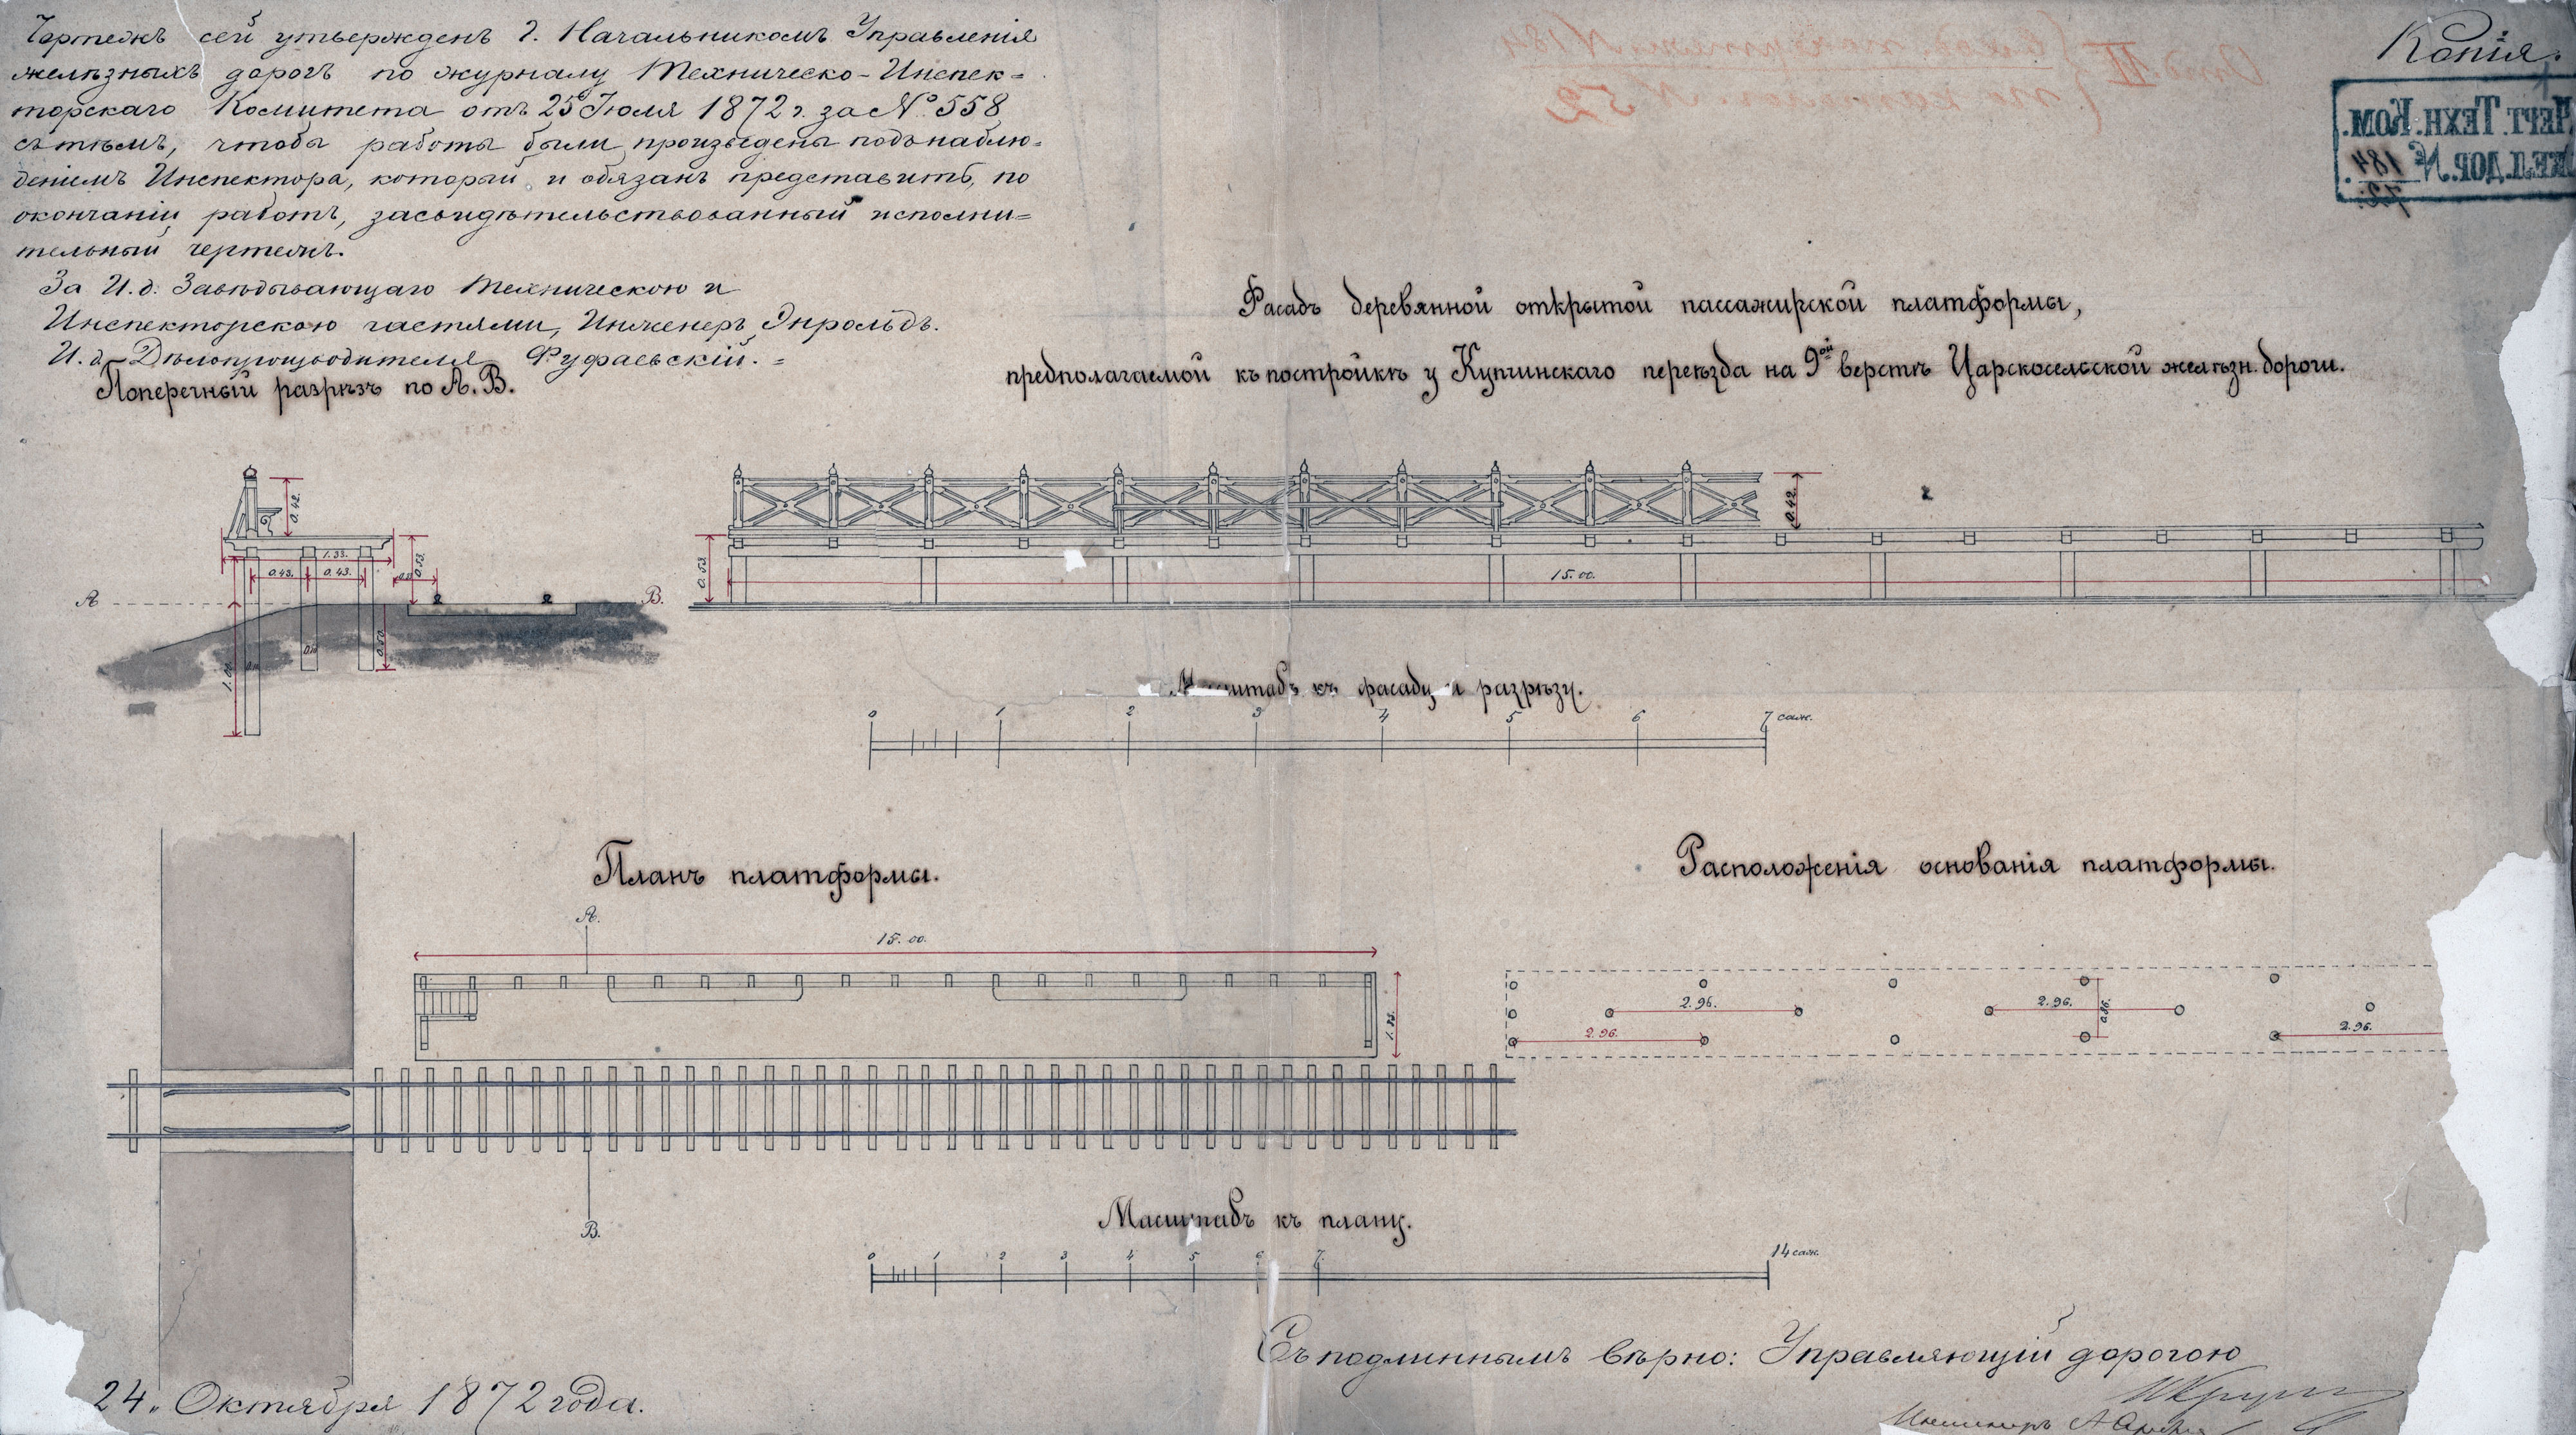 Чертежъ сей утвержденъ Г. Начальникомъ Управленія
желѣзныхъ дорогъ по журналу Техническо-Инспек=
торскаго Комитета отъ 25 Іюля 1872 г. за № 558
съ тѣмъ, чтобы работы были произведены подъ наблю=
деніемъ Инспектора, который и обязанъ представить, по
окончаніи работъ, засвидѣтельствованный исполни=
тельный чертежъ.
За И.д. Завѣдывающаго Техническою и
Инспекторскою частями, Инженеръ Энрольдъ.
И.д. Дѣлопроизводителя Фуфаевскій.
Копія.
Черт. Техн. Ком.
Жел. дор. № 184
72
Отд. II
№ 184
52
Фасадъ деревянной открытой пассажирской платформы,
предполагаемой къ постройкѣ у Купчинскаго переѣзда на 9ой верстѣ Царскосельской желѣзн. дороги.
Поперечный разрѣзъ по А. В.
0.42.
1.33.
0.43. 0.43.
0.53
А
В.
0.50
1.00
0.42.
0.53
15.00.
Масштабъ къ фасаду и разрѣзу.
0 1 2 3 4 5 6 7 саж.
Планъ платформы.
А.
15.00.
1.33.
В.
Расположенія основанія платформы.
2.96. 2.96. 0.86.
2.96. 2.96.
Масштабъ къ плану.
0 1 2 3 4 5 6 7 14 саж.
Съ подлиннымъ вѣрно: Управляющій дорогою
Инженеръ
24. Октября 1872 года.